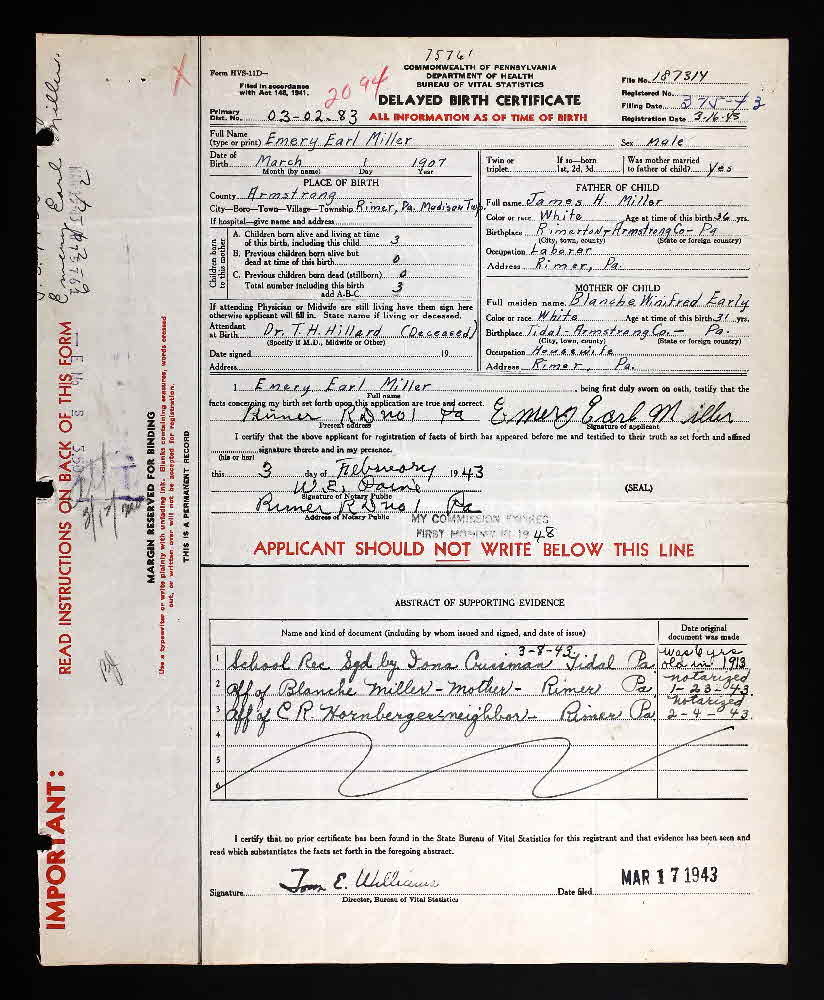 75761
COMMONWEALTH OF PENNSYLVANIA
DEPARTMENT OF HEALTH
BUREAU OF VITAL STATISTICS
Form HVS-11D—
Filed in accordance
with Act 148, 1941.
2094
DELAYED BIRTH CERTIFICATE
File No. 187314
Registered No.
Filing Date
Registration Date 3-16-43
Primary
Dist. No. 03-02-83
ALL INFORMATION AS OF TIME OF BIRTH
Full Name
(type or print) Emery Earl Miller Sex male
Date of
Birth March 1 1907
Month (by name) Day Year
Twin or
triplet
If so—born
1st, 2d, 3d
Was mother married
to father of child? yes
PLACE OF BIRTH
County Armstrong
City—Boro—Town—Village—Township Rimer, Pa. Madison Twp.
If hospital—give name and address
Children born
to this mother
A. Children born alive and living at time
of this birth, including this child 3
B. Previous children born alive but
dead at time of this birth 0
C. Previous children born dead (stillborn) 0
Total number including this birth
add A-B-C 3
FATHER OF CHILD
Full name James H. Miller
Color or race White Age at time of this birth 36 yrs.
Birthplace Rimerton, Armstrong Co- Pa
(City, town, county) (State or foreign country)
Occupation Laborer
Address Rimer, Pa.
MOTHER OF CHILD
Full maiden name Blanche Winifred Early
Color or race White Age at time of this birth 31 yrs.
Birthplace Tidal-Armstrong Co.- Pa.
(City, town, county) (State or foreign country)
Occupation Housewife
Address Rimer, Pa.
If attending Physician or Midwife are still living have them sign here
otherwise applicant will fill in. State name if living or deceased.
Attendant
at Birth Dr. T. H. Hillard (Deceased)
(Specify if M.D., Midwife or Other)
Date signed 19
Address
I Emery Earl Miller, being first duly sworn on oath, testify that the
Full name
facts concerning my birth set forth upon this application are true and correct.
Rimer R D no 1 Pa Emery Earl Miller
Present address Signature of applicant
I certify that the above applicant for registration of facts of birth has appeared before me and testified to their truth as set forth and affixed
signature thereto and in my presence.
(his or her)
this 3 day of February 1943
W. E.
Signature of Notary Public
(SEAL)
Rimer R D no 1 Pa
Address of Notary Public
MY COMMISSION EXPIRES
FIRST MONDAY IN 1948
APPLICANT SHOULD NOT WRITE BELOW THIS LINE
ABSTRACT OF SUPPORTING EVIDENCE
Name and kind of document (including by whom issued and signed, and date of issue)
Date original
document was made
3-8-43
1 School Rec Sgd by Iona Crissman Tidal Pa was 6 yrs old in 1913
2 Aff of Blanche Miller - Mother - Rimer Pa notarized 1-23-43
3 Aff of C R. Hornberger neighbor - Rimer Pa notarized 2-4-43.
4
5
6
I certify that no prior certificate has been found in the State Bureau of Vital Statistics for this registrant and that evidence has been seen and
read which substantiates the facts set forth in the foregoing abstract.
Signature Tom E. Williams
Director, Bureau of Vital Statistics
Date filed MAR 17 1943
IMPORTANT: READ INSTRUCTIONS ON BACK OF THIS FORM
MARGIN RESERVED FOR BINDING
Use a typewriter or write plainly with unfading ink. Blanks containing erasures, words crossed
out, or written over will not be accepted for registration.
THIS IS A PERMANENT RECORD
Emery Earl Miller